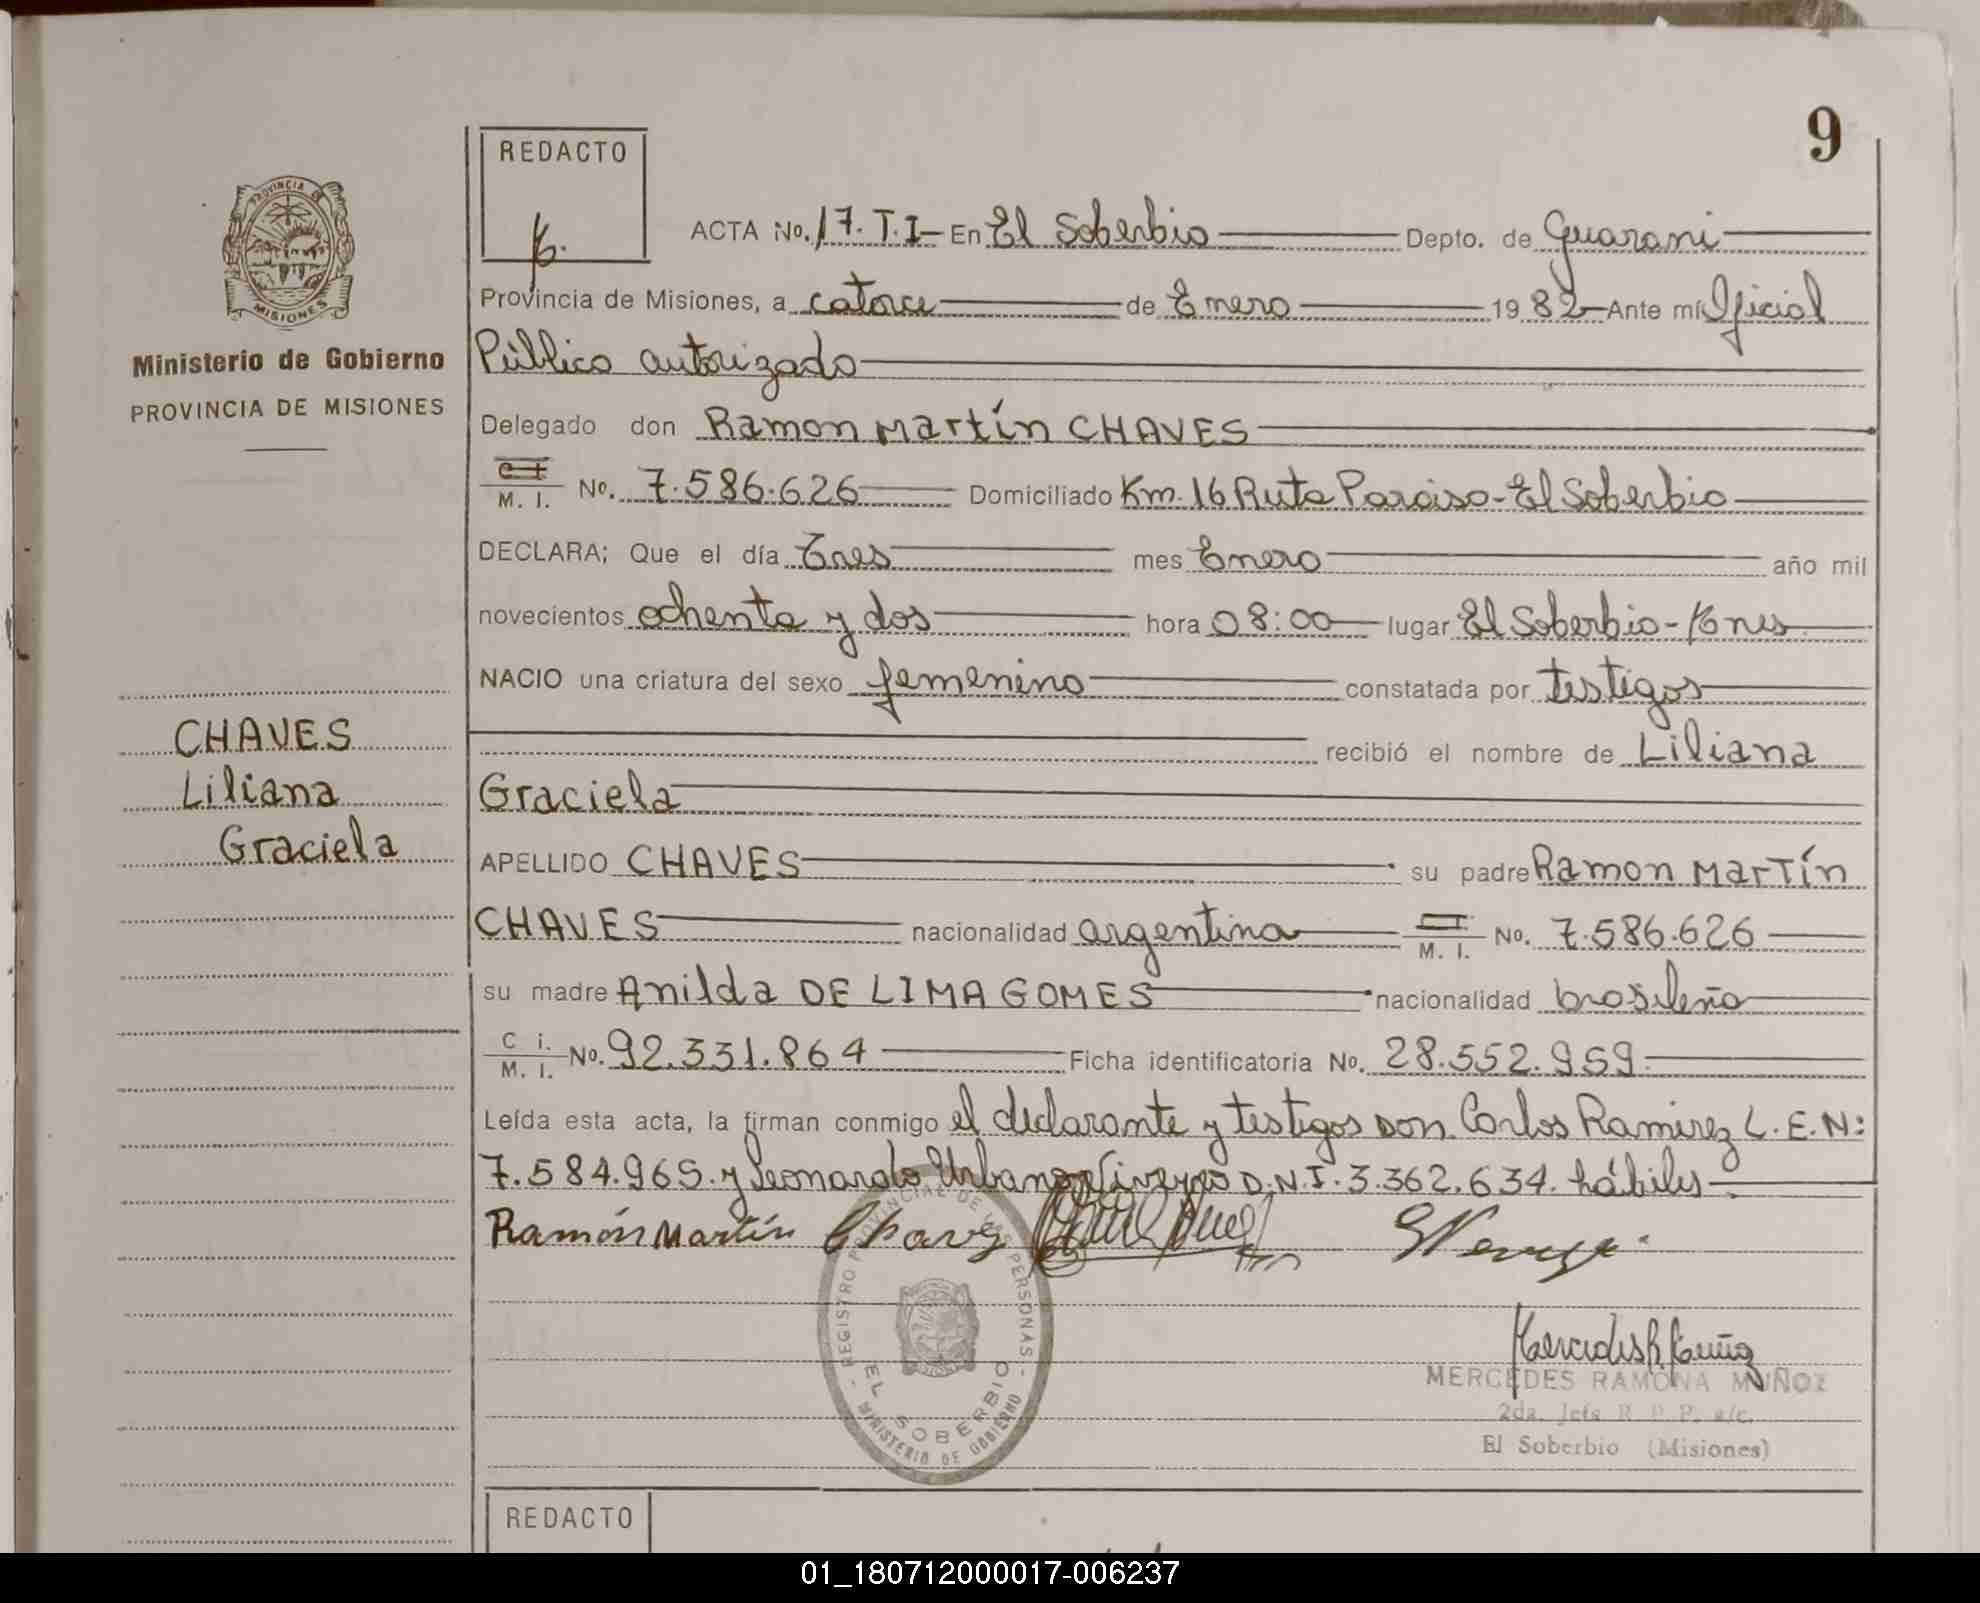 9
REDACTO
ACTA No. 17. T. I - En El Soberbio Depto. de Guarani
Provincia de Misiones, a catorce de Enero 1982 Ante mí Oficial
Público autorizado
Delegado don Ramon Martín CHAVES
C I
M. I. No. 7.586.626 Domiciliado Km. 16 Ruta Paraiso - El Soberbio
DECLARA; Que el día Tres mes Enero año mil
novecientos ochenta y dos hora 08:00 lugar El Soberbio -
NACIO una criatura del sexo femenino constatada por testigos
recibió el nombre de Liliana
Graciela
APELLIDO CHAVES su padre Ramon Martín
CHAVES nacionalidad argentina M. I. No. 7.586.626
su madre Anilda DE LIMA GOMES nacionalidad brasileña
C i.
M. I. No. 92.331.864 Ficha identificatoria No. 28.552.959
Leída esta acta, la firman conmigo el declarante y testigos Don Carlos Ramirez L.E.N:
7.584.965. y Leonardo Urbano D.N.I. 3.362.634. hábiles
Ramón Martín Chavez
PROVINCIA DE
MISIONES
Ministerio de Gobierno
PROVINCIA DE MISIONES
CHAVES
Liliana
Graciela
REGISTRO PROVINCIAL DE LAS PERSONAS
EL SOBERBIO
MINISTERIO DE GOBIERNO
Mercedes R. Muñoz
MERCEDES RAMONA MUÑOZ
2da. Jefa R. P. P. a/c.
El Soberbio (Misiones)
REDACTO
01_180712000017-006237